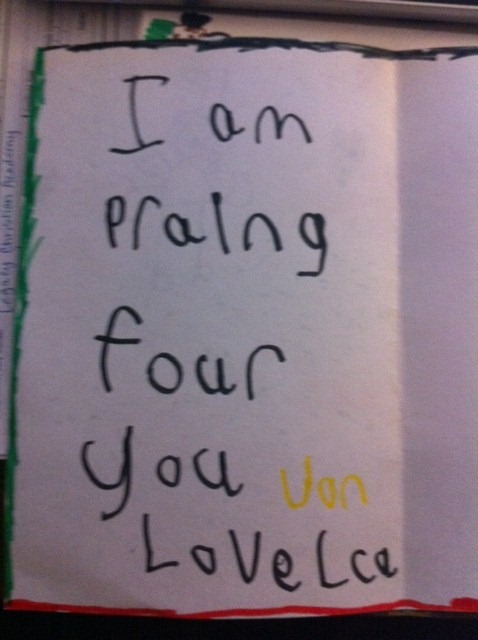 I am
Pralng
four
you Von
LoVeLca
Legacy Christian Academy